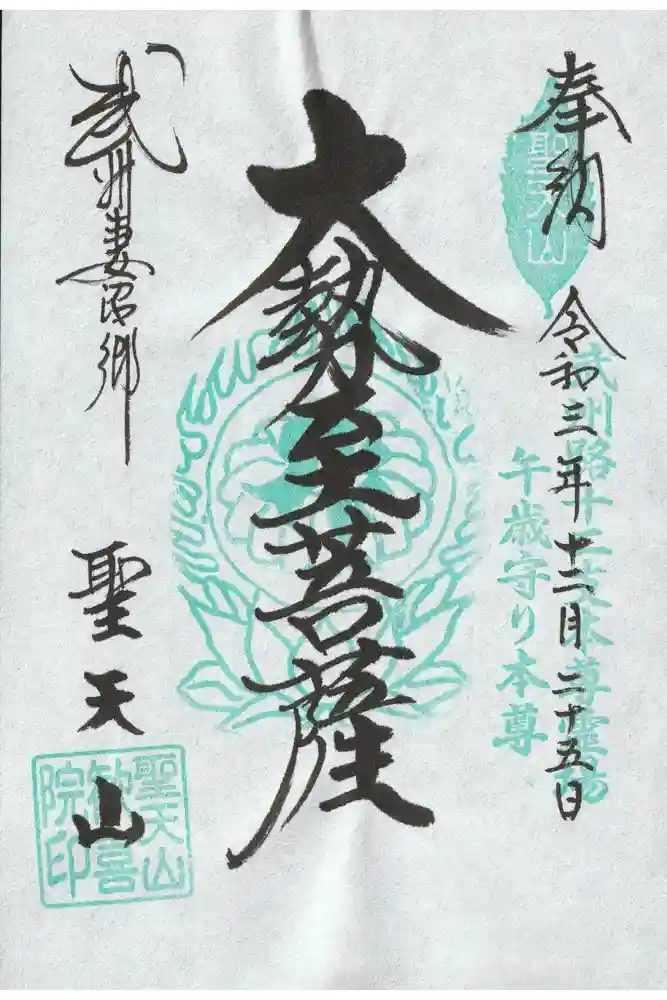 奉納
聖天山
令和三年十二月二十五日
武州路十二支本尊霊場
午歳守り本尊
大勢至菩薩
武州妻沼郷
聖天山
聖天山
歓喜
院印